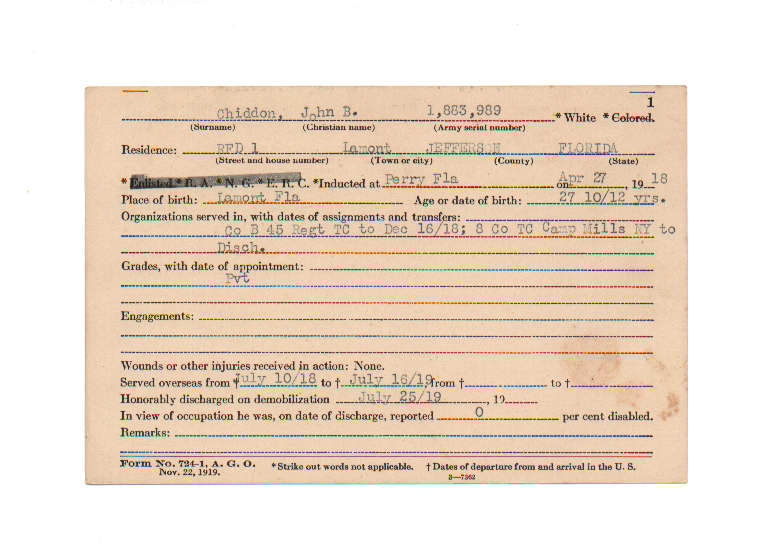 1
Chiddon, John B. 1,883,989 * White * Colored.
(Surname) (Christian name) (Army serial number)
Residence: RFD 1 Lamont JEFFERSON FLORIDA
(Street and house number) (Town or city) (County) (State)
* Enlisted * R. A. * N. G. * E. R. C. *Inducted at Perry Fla on Apr 27, 1918
Place of birth: Lamont Fla Age or date of birth: 27 10/12 yrs.
Organizations served in, with dates of assignments and transfers:
Co B 45 Regt TC to Dec 16/18; 8 Co TC Camp Mills NY to
Disch.
Grades, with date of appointment:
Pvt
Engagements:
Wounds or other injuries received in action: None.
Served overseas from † July 10/18 to † July 16/19, from † to †
Honorably discharged on demobilization July 25/19, 19
In view of occupation he was, on date of discharge, reported 0 per cent disabled.
Remarks:
Form No. 724-1, A. G. O. * Strike out words not applicable. † Dates of departure from and arrival in the U. S.
Nov. 22, 1919. 3—7362